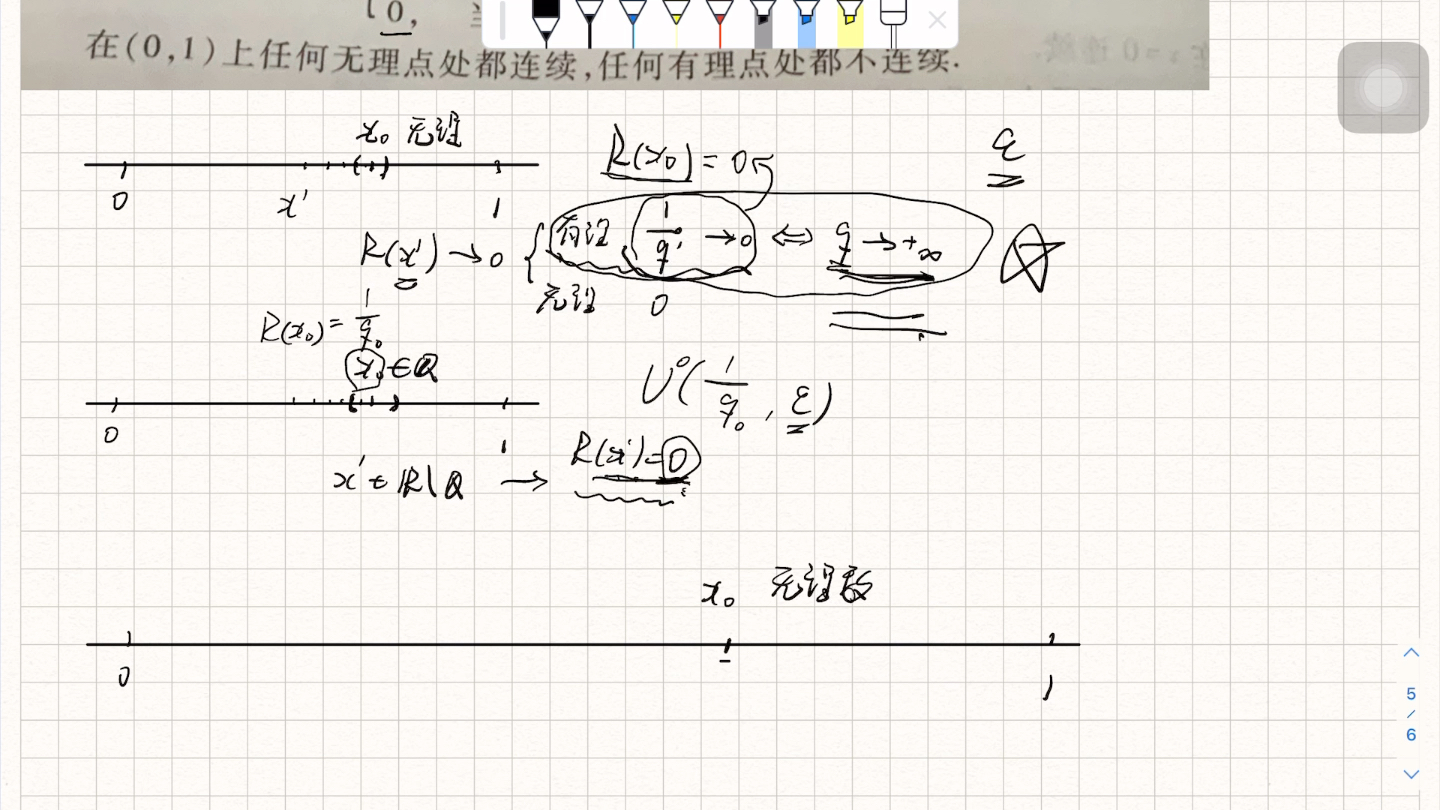 0,
在(0,1)上任何无理点处都连续,任何有理点处都不连续.
x₀ 无理
0 x' 1
R(x₀) = 0
ε
R(x') → 0 { 有理 1/q → 0 ⇔ q → +∞
无理 0
R(x₀) = 1/q₀
x₀ ∈ Q
0 1
U°(1/q₀, ε)
x' ∈ R\Q → R(x') = 0
x₀ 无理数
0 1
5
/
6